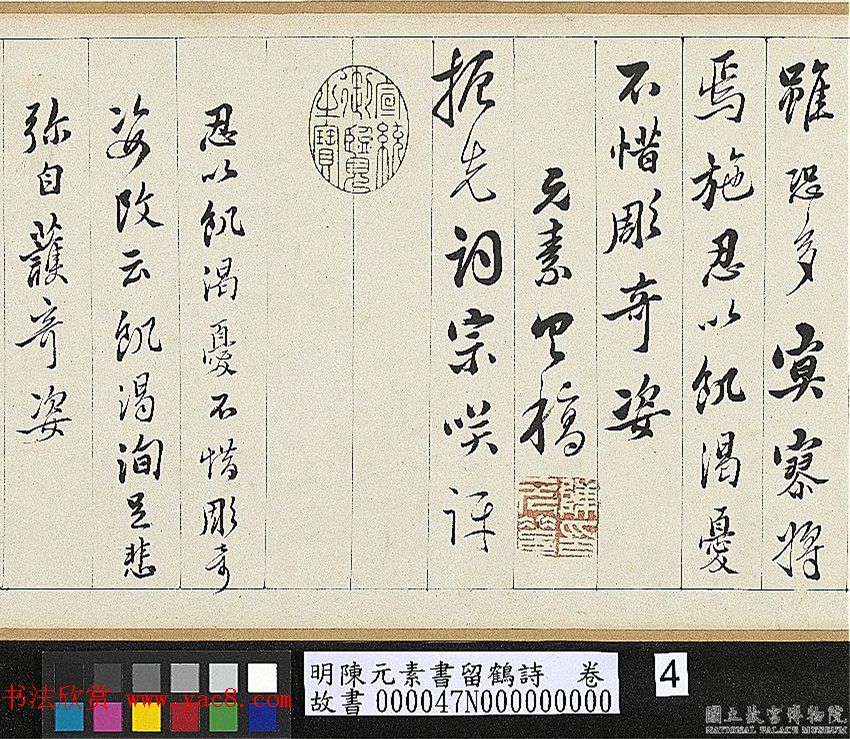 雖恐多寞寥將
焉施忍以飢渴憂
不惜彫奇姿
元素具稿
振先詞宗咲評
宣統
御覽
之寶
忍以飢渴憂不惜彫奇
姿改云飢渴洵足悲
弥自護奇姿
明陳元素書留鶴詩 卷
故書 000047N000000000
4
书法欣赏 www.yac8.com
國立故宮博物院
NATIONAL PALACE MUSEUM